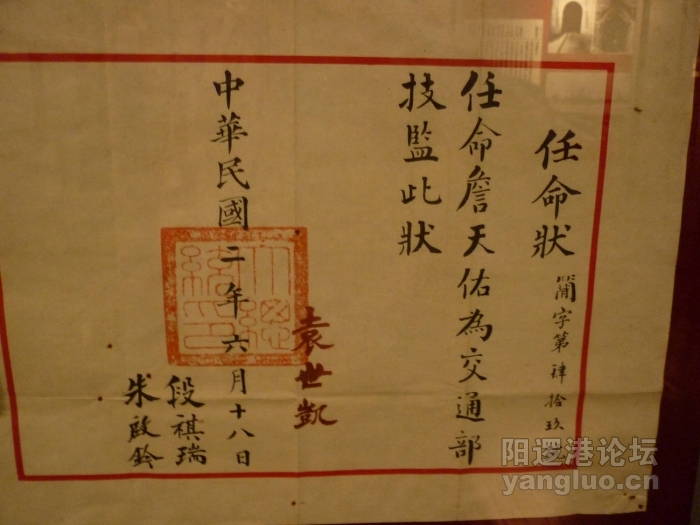 任命狀
簡字第肆拾玖號
任命詹天佑為交通部
技監此狀
大總統印
袁世凱
中華民國二年六月十八日
段祺瑞
朱啟鈐
阳逻港论坛
yangluo.cn